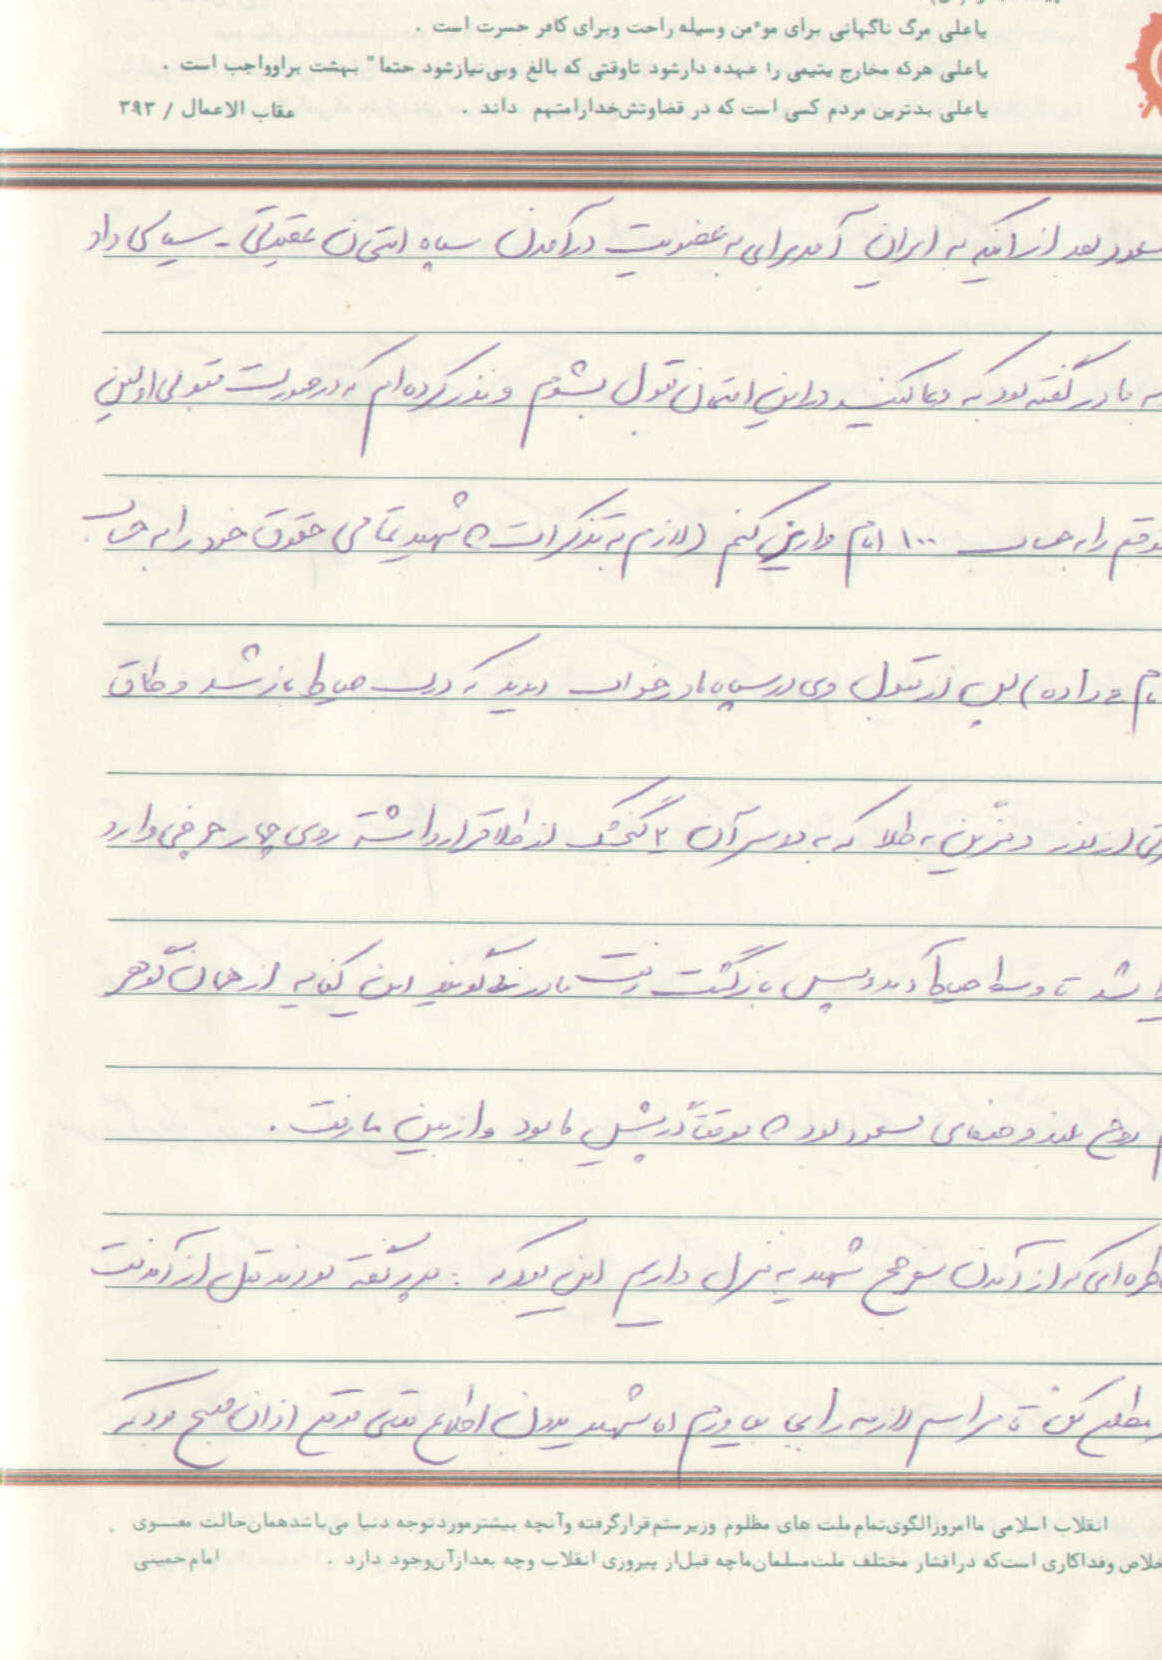 یاعلی مرگ ناگهانی برای موءمن وسیله راحت وبرای کافر حسرت است .
یاعلی هرکه مخارج یتیمی را عهده دارشود تاوقتی که بالغ وبی‌نیازشود حتما" بهشت براوواجب است .
یاعلی بدترین مردم کسی است که در قضاوتش‌خدارامتهم داند . عقاب الاعمال / ۳۹۳
مسعود بعد از اینکه به ایران آمد برای به عضویت درآمدن سپاه امتحان عقیدتی - سیاسی داد
به مادر گفته بود که دعا کنید در این امتحان قبول بشوم و نذر کرده‌ام که در صورت قبولی اولین
حقوقم را به حساب ۱۰۰ امام واریز کنم (لازم به تذکر است که شهید تمامی حقوق خود را به حساب
امام می‌داده) پس از قبول وی در سپاه مادر خواب دیدند که درب حیاط باز شد و طاق
از نور و مزین به طلا که به دو سر آن ۲ گنجشک از طلا قرار داشت روی چهار چرخی وارد
حیاط شد تا وسط حیاط آمد و سپس بازگشت رفت مادر می‌گویند این کنایه از همان گوهر
روح بلند و مسعود بود که موقتاً در پیش ما بود و از بین ما رفت .
خاطره‌ای که از آمدن شهید به منزل داریم این بود که : پدر گفته بودند قبل از آمدنت
مطلع کن تا مراسم لازمه را بجا بیاورم اما شهید بدون اطلاع قبلی موقع اذان صبح بود که
انقلاب اسلامی ماامروزالگوی‌تمام‌ملت های مظلوم وزیرستم‌قرارگرفته وآنچه بیشترموردتوجه دنیا می‌باشدهمان‌حالت معنـوی
خلاص وفداکاری است‌که دراقشار مختلف ملت‌مسلمان‌ماچه قبل‌از پیروزی انقلاب وچه بعدازآن‌وجود دارد . امام‌خمینی